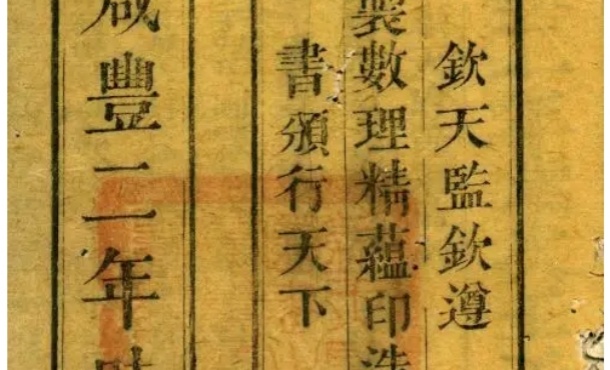 欽天監欽遵
製數理精蘊印造
書頒行天下
咸豐二年時